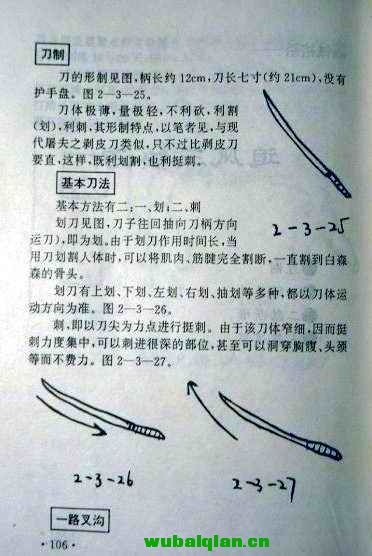 刀制
刀的形制见图，柄长约12cm，刀长七寸（约21cm），没有
护手盘。图2—3—25。
刀体极薄，量极轻，不利砍，利割
（划），利刺，其形制特点，以笔者见，与现
代屠夫之剥皮刀类似，只不过比剥皮刀
要直，这样，既利划割，也利挺刺。
基本刀法
基本方法有二：一、划；二、刺
划刀见图，刀子往回抽向刀柄方向
运刀），即为划。由于划刀作用时间长，当
用刀划割人体时，可以将肌肉、筋腱完全割断，一直割到白森
森的骨头。
2-3-25
划刀有上划、下划、左划、右划、抽划等多种，都以刀体运
动方向为准。图2—3—26。
刺，即以刀尖为力点进行挺刺。由于该刀体窄细，因而挺
刺力度集中，可以刺进很深的部位，甚至可以洞穿胸腹、头颈
等而不费力。图2—3—27。
2-3-26
2-3-27
一路叉沟
·106·
wubaiqian.cn